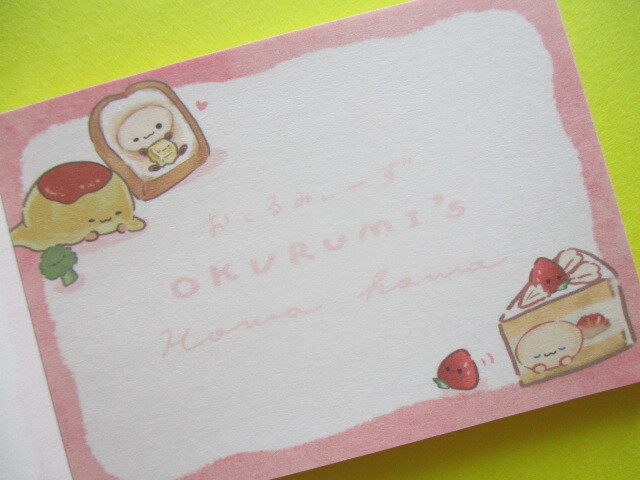 おくるみぃーず
OKURUMI's
Howa howa